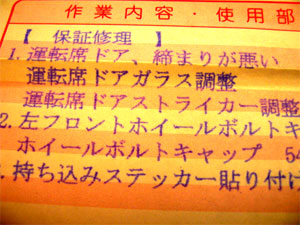 作業内容・使用部
【 保証修理 】
1.運転席ドア、締まりが悪い
運転席ドアガラス調整
運転席ドアストライカー調整
2.左フロントホイールボルトキ
ホイールボルトキャップ 54
.持ち込みステッカー貼り付け